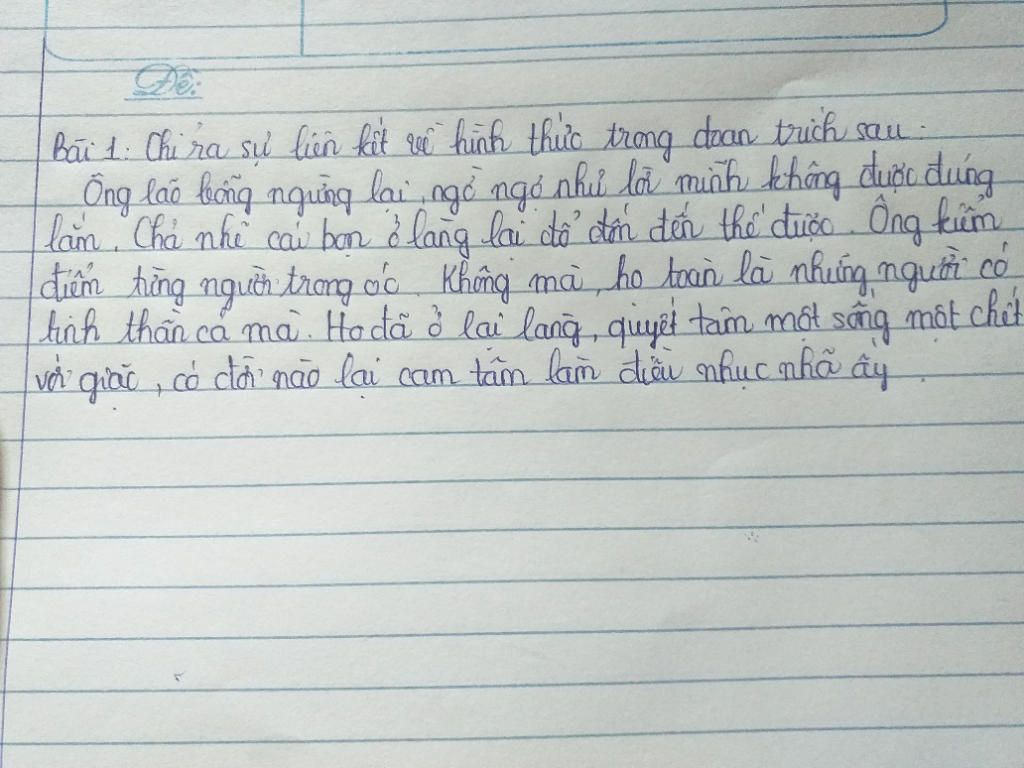 Đề:
Bài 1: Chỉ ra sự liên kết về hình thức trong đoạn trích sau:
Ông lão bỗng ngừng lại, ngờ ngợ như lời mình không được đúng
lắm. Chả nhẽ cái bọn ở làng lại đổ đốn đến thế được. Ông kiểm
điểm từng người trong óc. Không mà, họ toàn là những người có
tinh thần cả mà. Họ đã ở lại làng, quyết tâm một sống một chết
với giặc, có đời nào lại cam tâm làm điều nhục nhã ấy.